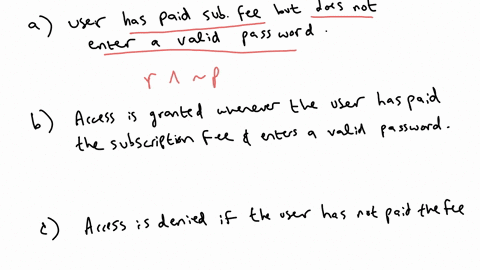 a) user has paid sub. fee but does not
enter a valid password.
r ∧ ~p
b) Access is granted whenever the user has paid
the subscription fee & enters a valid password.
c) Access is denied if the user has not paid the fee